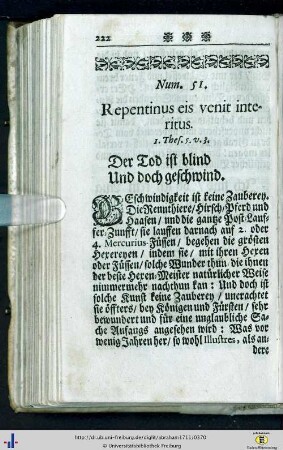 222
Num. 51.
Repentinus eis venit inte-
ritus.
1. Thes. 5. v. 3.
Der Tod ist blind
Und doch geschwind.
GEschwindigkeit ist keine Zauberey.
Die Rennthiere / Hirsch / Pferd und
Haasen / und die gantze Post-Lauf-
fer Zunfft / sie lauffen darnach auf 2. oder
4. Mercurius-Füssen / begehen die grösten
Hexereyen / indem sie / mit ihren Hexen
oder Füssen / solche Wunder thun die ihnen
der beste Hexen-Meister natürlicher Weise
nimmermehr nachthun kan : Und doch ist
solche Kunst keine Zauberey / unerachtet
sie öffters / bey Königen und Fürsten / sehr
bewundert und für eine unglaubliche Sa-
che Anfangs angesehen wird : Was vor
wenig Jahren her / so wohl Illustres, als an-
dere
http://dl.ub.uni-freiburg.de/diglit/abraham1711/0370
© Universitätsbibliothek Freiburg